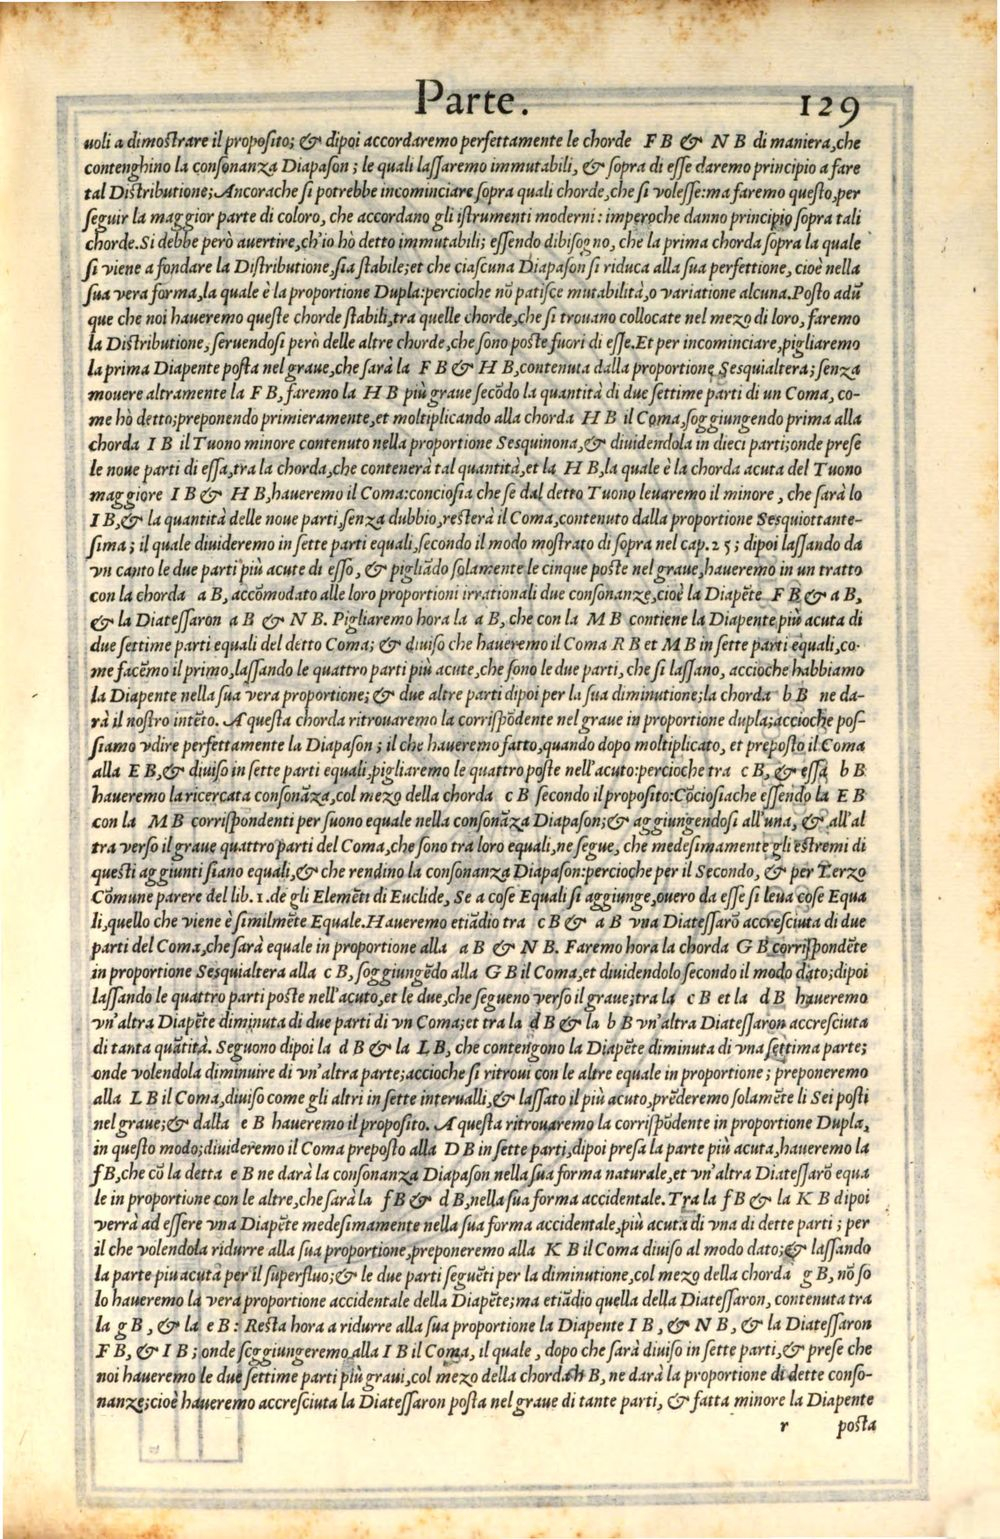 Parte. 129
uoli a dimoſtrare il propoſito; & dipoi accordaremo perfettamente le chorde F B & N B di maniera, che
contenghino la conſonanza Diapaſon; le quali laſſaremo immutabili, & ſopra di eſſe daremo principio a fare
tal Diſtributione; Ancorache ſi potrebbe incominciare ſopra quali chorde, che ſi voleſſe: ma faremo queſto, per
ſeguir la maggior parte di coloro, che accordano gli iſtrumenti moderni: imperoche danno principio ſopra tali
chorde. Si debbe però auertire, ch'io hò detto immutabili; eſſendo dibiſogno, che la prima chorda ſopra la quale
ſi viene a fondare la Diſtributione, ſia ſtabile; et che ciaſcuna Diapaſon ſi riduca alla ſua perfettione, cioè nella
ſua vera forma, la quale è la proportione Dupla: percioche nõ patiſce mutabilità, o variatione alcuna. Poſto adũ
que che noi haueremo queſte chorde ſtabili, tra quelle chorde, che ſi trouano collocate nel mezo di loro, faremo
la Diſtributione, ſeruendoſi però delle altre chorde, che ſono poſte fuori di eſſe. Et per incominciare, pigliaremo
la prima Diapente poſta nel graue, che ſarà la F B & H B, contenuta dalla proportione Seſquialtera; ſenza
mouere altramente la F B, faremo la H B più graue ſecõdo la quantità di due ſettime parti di un Coma, co-
me hò detto; preponendo primieramente, et moltiplicando alla chorda H B il Coma, ſoggiungendo prima alla
chorda I B il Tuono minore contenuto nella proportione Seſquinona, & diuidendola in dieci parti; onde preſe
le noue parti di eſſa, tra la chorda, che contenerà tal quantità, et la H B, la quale è la chorda acuta del Tuono
maggiore I B & H B, haueremo il Coma: conciosia che ſe dal detto Tuono leuaremo il minore, che ſarà lo
I B, & la quantità delle noue parti, ſenza dubbio, reſterà il Coma, contenuto dalla proportione Seſquiottante-
ſima; il quale diuideremo in ſette parti equali, ſecondo il modo moſtrato di ſopra nel cap. 25; dipoi laſſando da
vn canto le due parti più acute di eſſo, & pigliãdo ſolamente le cinque poſte nel graue, haueremo in un tratto
con la chorda a B, accõmodato alle loro proportioni irrationali due conſonanze, cioè la Diapẽte F B & a B,
& la Diateſſaron a B & N B. Pigliaremo hora la a B, che con la M B contiene la Diapente più acuta di
due ſettime parti equali del detto Coma; & diuiſo che haueremo il Coma R B et M B in ſette parti equali, co-
me facẽmo il primo, laſſando le quattro parti più acute, che ſono le due parti, che ſi laſſano, accioche habbiamo
la Diapente nella ſua vera proportione; & due altre parti dipoi per la ſua diminutione; la chorda b B ne da-
rà il noſtro intẽto. A queſta chorda ritrouaremo la corriſpõdente nel graue in proportione dupla; accioche poſ-
ſiamo vdire perfettamente la Diapaſon; il che haueremo fatto, quando dopo moltiplicato, et prepoſto il Coma
alla E B, & diuiſo in ſette parti equali, pigliaremo le quattro poſte nell'acuto: percioche tra c B, & eſſa b B
haueremo la ricercata conſonãza, col mezo della chorda c B ſecondo il propoſito: Cõciosiache eſſendo la E B
con la M B corriſpondenti per ſuono equale nella conſonãza Diapaſon; & aggiungendoſi all'una, & all'al
tra verſo il graue quattro parti del Coma, che ſono tra loro equali, ne ſegue, che medeſimamente gli eſtremi di
queſti aggiunti ſiano equali, & che rendino la conſonanza Diapaſon: percioche per il Secondo, & per Terzo
Cõmune parere del lib. 1. de gli Elemẽti di Euclide, Se a coſe Equali ſi aggiunge, ouero da eſſe ſi leua coſe Equa
li, quello che viene è ſimilmẽte Equale. Haueremo etiãdio tra c B & a B vna Diateſſarõ accreſciuta di due
parti del Coma, che ſarà equale in proportione alla a B & N B. Faremo hora la chorda G B corriſpondẽte
in proportione Seſquialtera alla c B, ſoggiungẽdo alla G B il Coma, et diuidendolo ſecondo il modo dato; dipoi
laſſando le quattro parti poſte nell'acuto, et le due, che ſegueno verſo il graue; tra la c B et la d B haueremo
vn'altra Diapẽte diminuta di due parti di vn Coma; et tra la d B & la b B vn'altra Diateſſaron accreſciuta
di tanta quãtità. Seguono dipoi la d B & la L B, che contengono la Diapẽte diminuta di vna ſettima parte;
onde volendola diminuire di vn'altra parte; accioche ſi ritroui con le altre equale in proportione; preponeremo
alla L B il Coma, diuiſo come gli altri in ſette interualli, & laſſato il più acuto, prẽderemo ſolamẽte li Sei poſti
nel graue; & dalla e B haueremo il propoſito. A queſta ritrouaremo la corriſpõdente in proportione Dupla,
in queſto modo; diuideremo il Coma prepoſto alla D B in ſette parti, dipoi preſa la parte più acuta, haueremo la
f B, che cõ la detta e B ne darà la conſonanza Diapaſon nella ſua forma naturale, et vn'altra Diateſſarõ equa
le in proportione con le altre, che ſarà la f B & d B, nella ſua forma accidentale. Tra la f B & la K B dipoi
verrà ad eſſere vna Diapẽte medeſimamente nella ſua forma accidentale, più acuta di vna di dette parti; per
il che volendola ridurre alla ſua proportione, preponeremo alla K B il Coma diuiſo al modo dato; & laſſando
la parte piu acuta per il ſuperfluo; & le due parti ſeguẽti per la diminutione, col mezo della chorda g B, nõ ſo
lo haueremo la vera proportione accidentale della Diapẽte; ma etiãdio quella della Diateſſaron, contenuta tra
la g B, & la e B: Reſta hora a ridurre alla ſua proportione la Diapente I B, & N B, & la Diateſſaron
F B, & I B; onde ſoggiungeremo alla I B il Coma, il quale, dopo che ſarà diuiſo in ſette parti, & preſe che
noi haueremo le due ſettime parti più graui, col mezo della chorda h B, ne darà la proportione di dette conſo-
nanze; cioè haueremo accreſciuta la Diateſſaron poſta nel graue di tante parti, & fatta minore la Diapente
r poſta